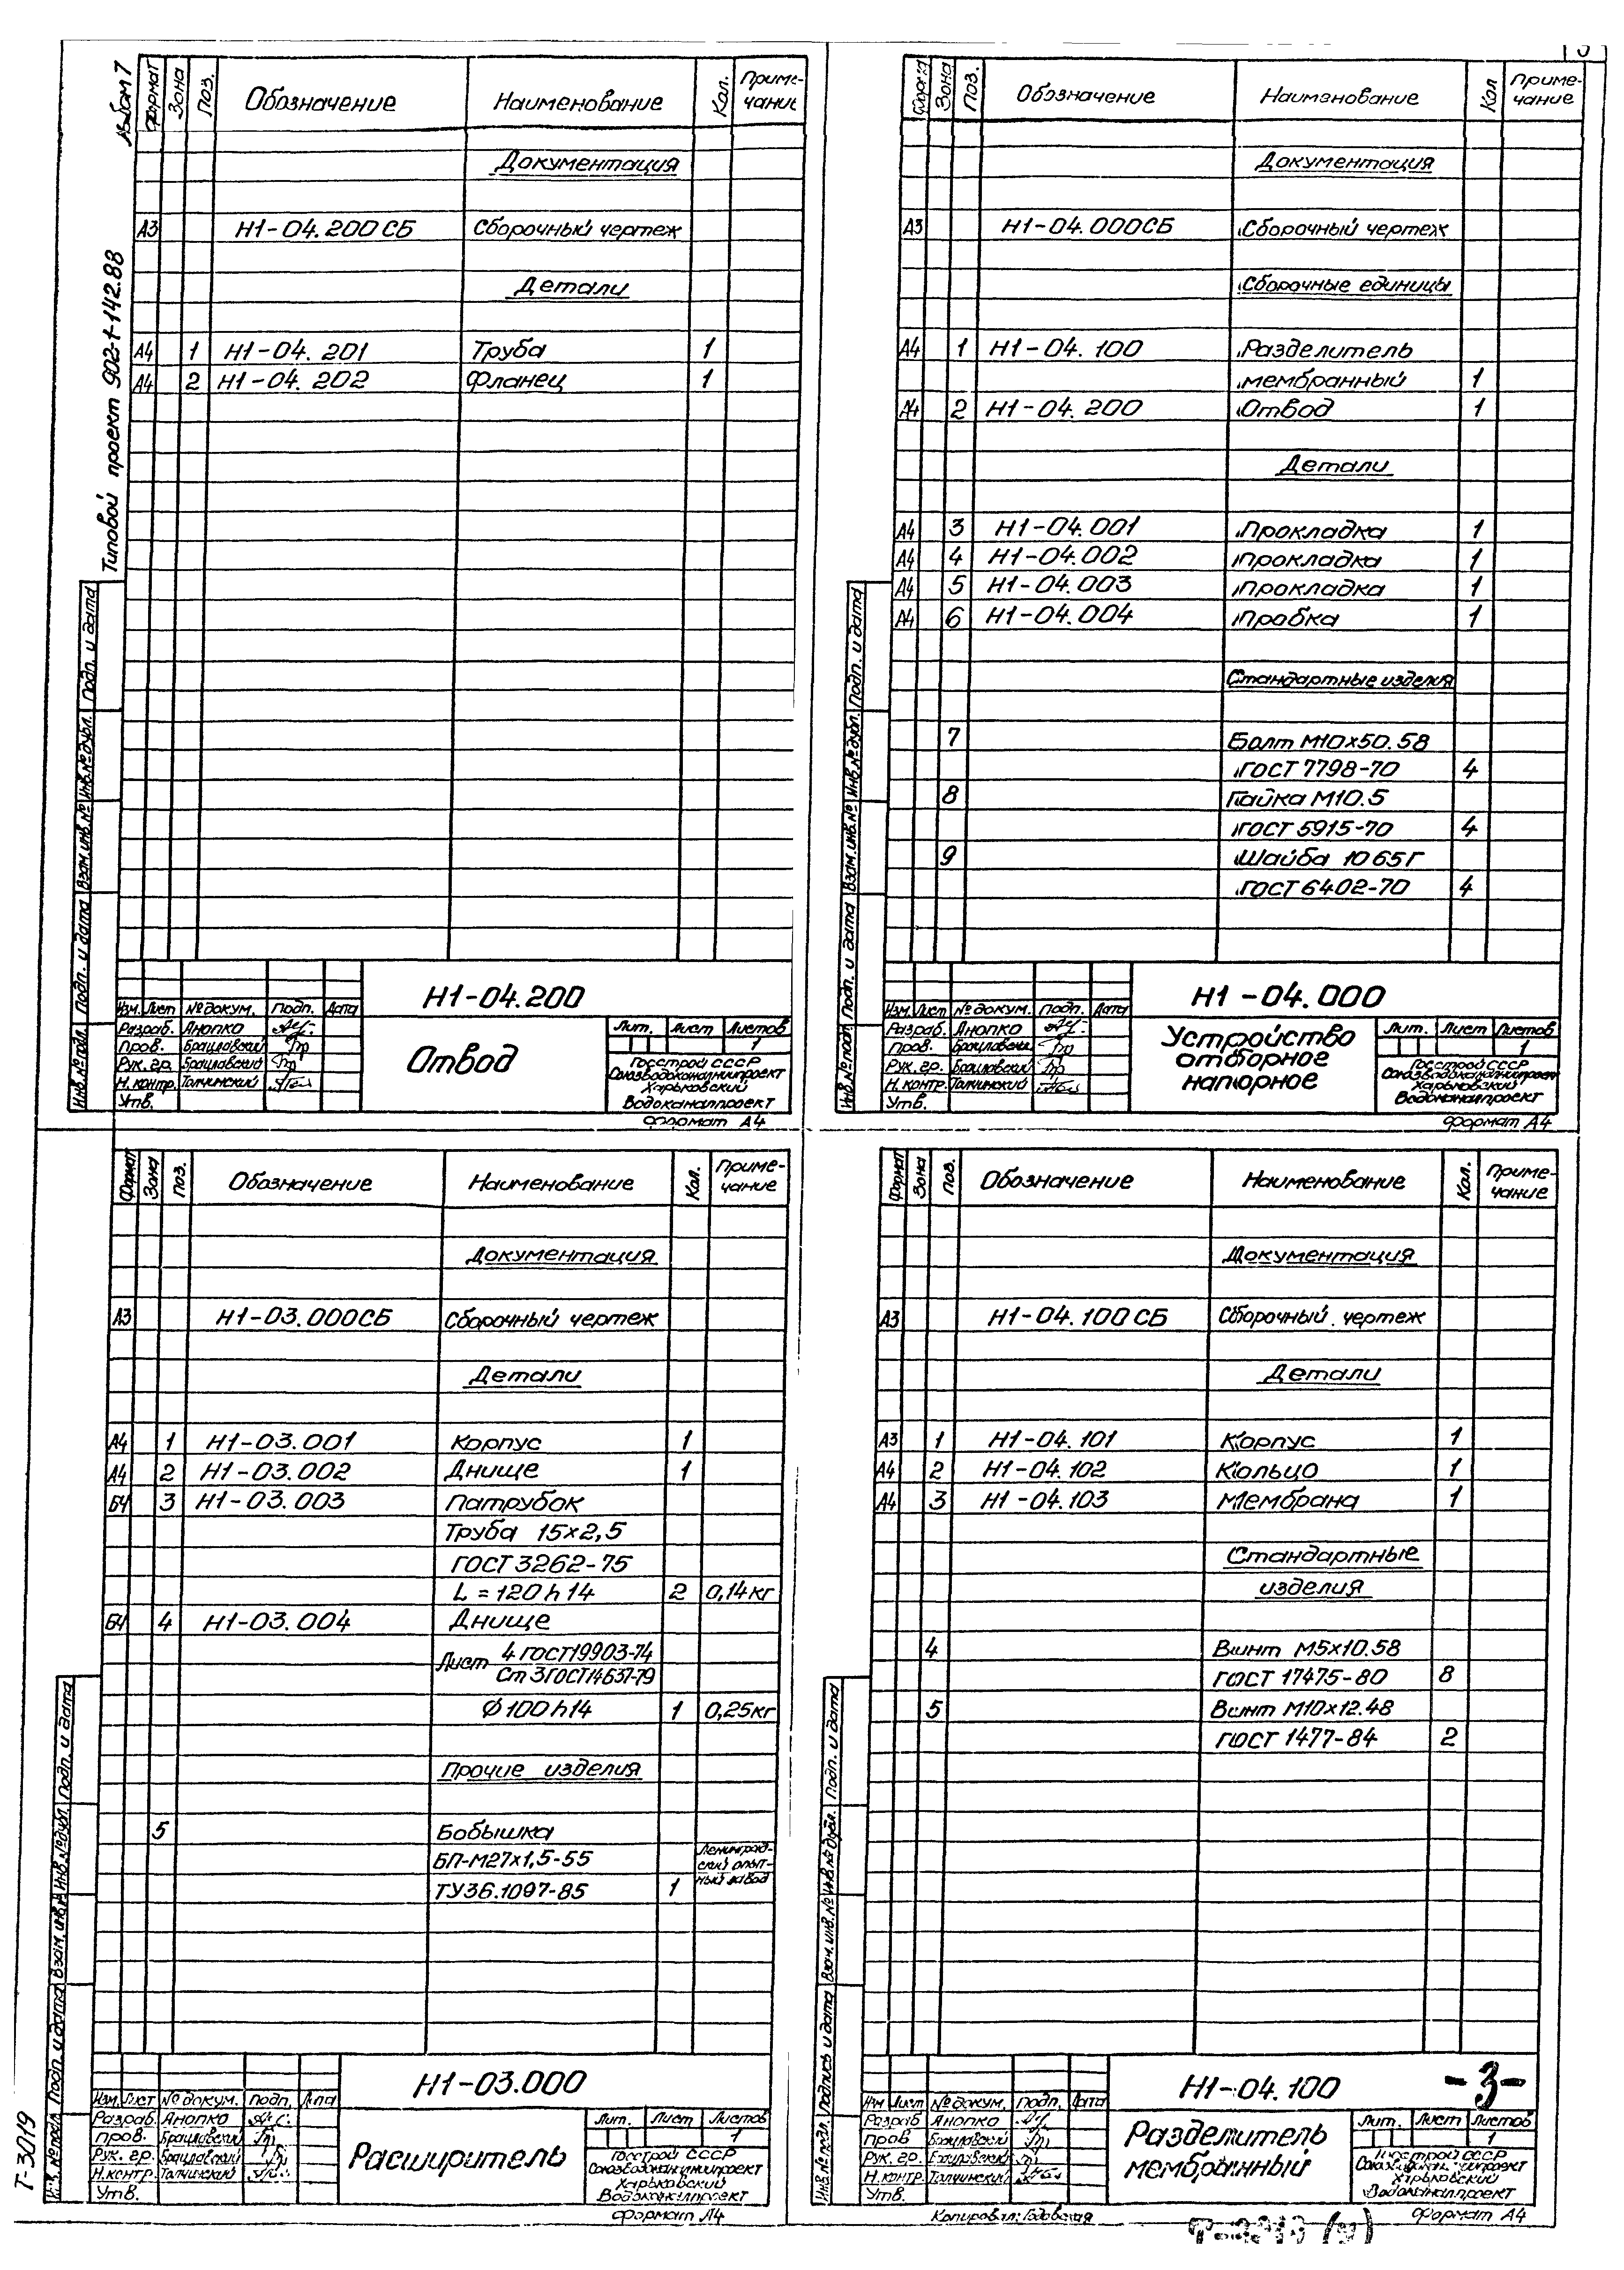 Альбом 7
Типовой проект 902-1-142.88
Формат Зона Поз. Обозначение Наименование Кол. Приме-
чание
Документация
А3 Н1-04.200СБ Сборочный чертеж
Детали
А4 1 Н1-04.201 Труба 1
А4 2 Н1-04.202 Фланец 1
Подп. и дата
Инв.№ дубл.
Взам.инв.№
Подп. и дата
Инв.№ подл.
Н1-04.200
Изм. Лист № докум. Подп. Дата
Разраб. Анопко
Пров. Брацлавский
Рук. гр. Брацлавский
Н. контр. Талчинский
Утв.
Отвод
Лит. Лист Листов
1
Госстрой СССР
Союзводоканалниипроект
Харьковский
Водоканалпроект
Формат А4
Зона Поз. Обозначение Наименование Кол Приме-
чание
Документация
А3 Н1-04.000СБ Сборочный чертеж
Сборочные единицы
А4 1 Н1-04.100 Разделитель
мембранный 1
А4 2 Н1-04.200 Отвод 1
Детали
А4 3 Н1-04.001 Прокладка 1
А4 4 Н1-04.002 Прокладка 1
А4 5 Н1-04.003 Прокладка 1
А4 6 Н1-04.004 Пробка 1
Стандартные изделия
7 Болт М10х50.58
ГОСТ 7798-70 4
8 Гайка М10.5
ГОСТ 5915-70 4
9 Шайба 10 65Г
ГОСТ 6402-70 4
Подп. и дата
Инв.№ дубл.
Взам.инв.№
Подп. и дата
Инв.№ подл.
Н1-04.000
Изм. Лист № докум. Подп. Дата
Разраб. Анопко
Пров. Брацлавский
Рук. гр. Брацлавский
Н. контр. Талчинский
Утв.
Устройство
отборное
напорное
Лит. Лист Листов
1
Госстрой СССР
Союзводоканалниипроект
Харьковский
Водоканалпроект
Формат А4
Формат Зона Поз. Обозначение Наименование Кол. Приме-
чание
Документация
А3 Н1-03.000СБ Сборочный чертеж
Детали
А4 1 Н1-03.001 Корпус 1
А4 2 Н1-03.002 Днище 1
БЧ 3 Н1-03.003 Патрубок
Труба 15х2,5
ГОСТ 3262-75
L = 120 h 14 2 0,14кг
БЧ 4 Н1-03.004 Днище
Лист 4 ГОСТ19903-74
Ст 3 ГОСТ14637-79
Ф 100 h14 1 0,25кг
Прочие изделия
5 Бобышка
БП-М27х1,5-55
ТУ36.1097-85 1
Ленинград-
ский опыт-
ный завод
Подп. и дата
Инв.№ дубл.
Взам.инв.№
Подп. и дата
Инв.№ подл.
Т-3019
Н1-03.000
Изм. Лист № докум. Подп. Дата
Разраб. Анопко
Пров. Брацлавский
Рук. гр. Брацлавский
Н.контр. Талчинский
Утв.
Расширитель
Лит. Лист Листов
1
Госстрой СССР
Союзводоканалниипроект
Харьковский
Водоканалпроект
Формат А4
Формат Зона Поз. Обозначение Наименование Кол. Приме-
чание
Документация
А3 Н1-04.100СБ Сборочный чертеж
Детали
А3 1 Н1-04.101 Корпус 1
А4 2 Н1-04.102 Кольцо 1
А4 3 Н1-04.103 Мембрана 1
Стандартные
изделия
4 Винт М5х10.58
ГОСТ 17475-80 8
5 Винт М10х12.48
ГОСТ 1477-84 2
Подп. и дата
Инв.№ дубл.
Взам.инв.№
Подпись и дата
Инв.№ подл.
Н1-04.100
-3-
Изм Лист № докум. Подп. Дата
Разраб Анопко
Пров Брацлавский
Рук. гр. Брацлавский
Н.контр. Талчинский
Утв.
Разделитель
мембранный
Лит. Лист Листов
1
Госстрой СССР
Союзводоканалниипроект
Харьковский
Водоканалпроект
Копировал: Годовская
Формат А4